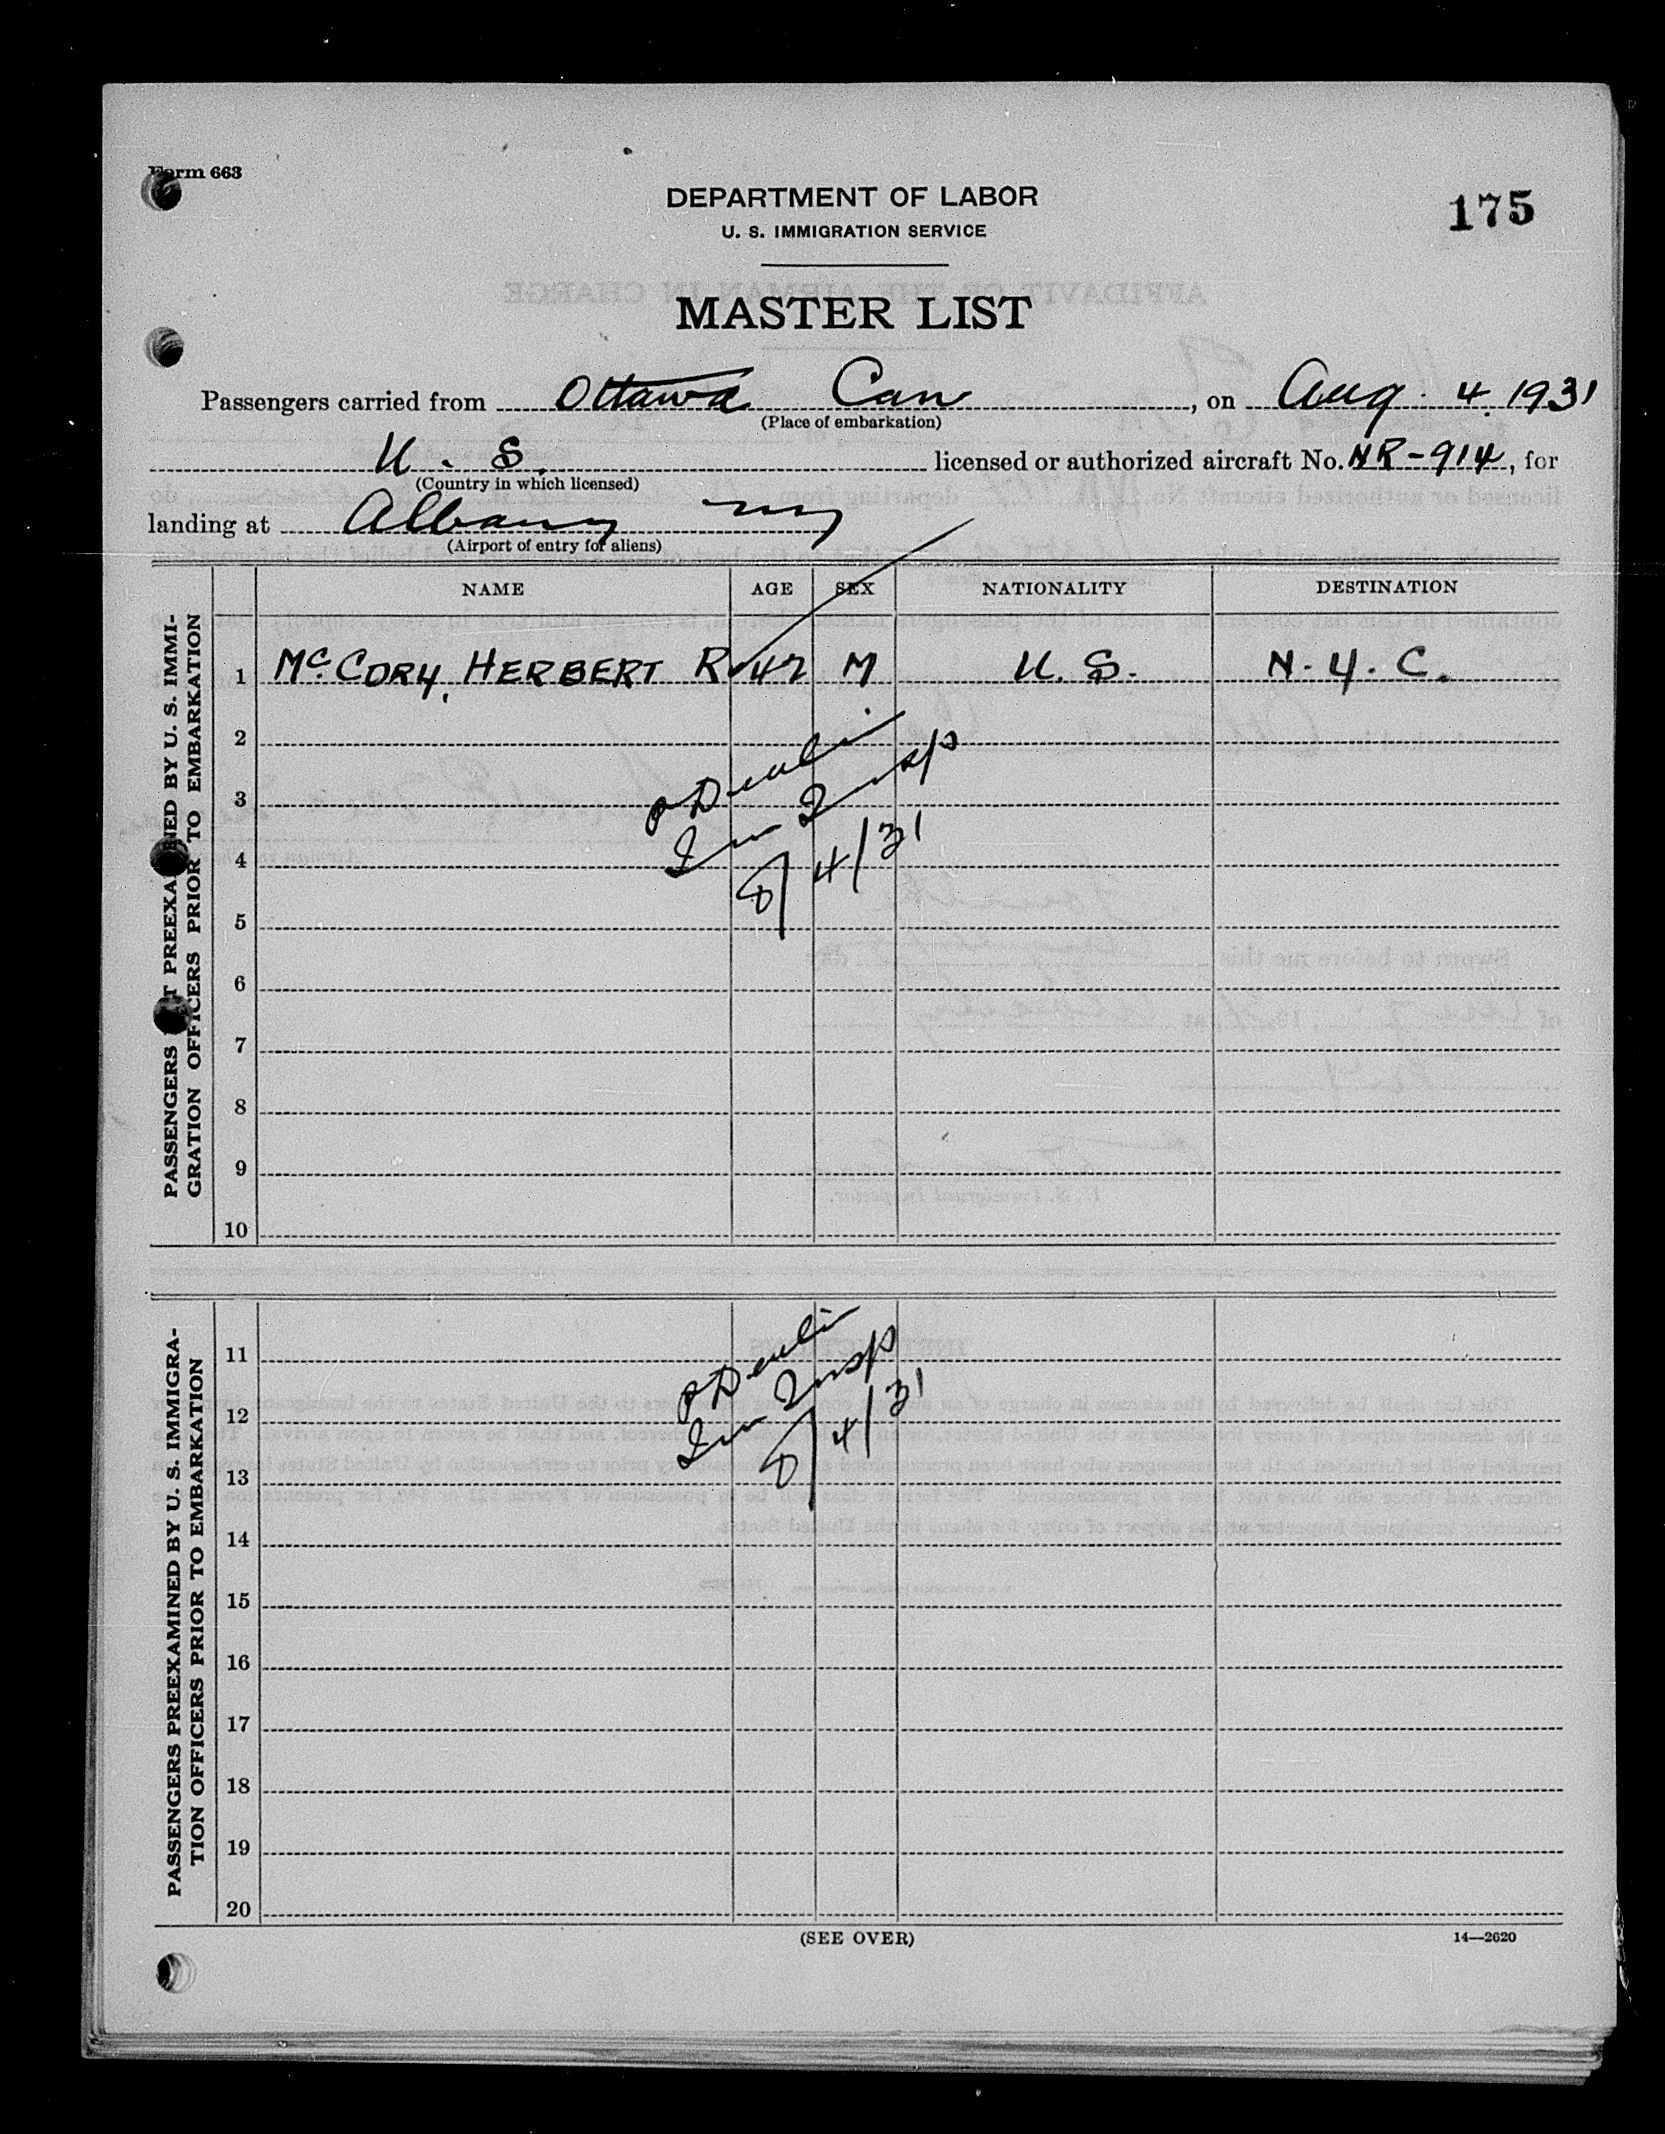 Form 663
DEPARTMENT OF LABOR
175
U. S. IMMIGRATION SERVICE
MASTER LIST
Passengers carried from Ottawa Can, on Aug. 4, 1931
(Place of embarkation)
U. S. licensed or authorized aircraft No. NR-914, for
(Country in which licensed)
landing at Albany NY
(Airport of entry for aliens)
NAME AGE SEX NATIONALITY DESTINATION
PASSENGERS NOT PREEXAMINED BY U. S. IMMI-
GRATION OFFICERS PRIOR TO EMBARKATION
1 McCORY, HERBERT R 42 M U. S. N. Y. C.
2
P Devlin
3
Im Insp
4
8/4/31
5
6
7
8
9
10
PASSENGERS PREEXAMINED BY U. S. IMMIGRA-
TION OFFICERS PRIOR TO EMBARKATION
11
P Devlin
12
Im Insp
13
8/4/31
14
15
16
17
18
19
20
(SEE OVER)
14—2620